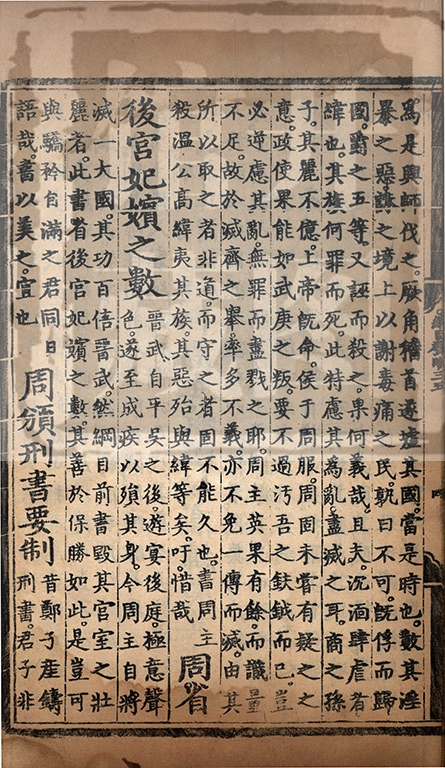 為是興師伐之厥角稽首遂墟其國當是時也數其淫
暴之惡誅之境上以謝毒痛之民孰曰不可既俘而歸
國爵之五等又誣而殺之果何義哉且夫沉湎肆虐者
緯也其族何罪而死此特慮其為亂盡滅之耳商之孫
子其麗不億上帝既命侯于周服周固未嘗有疑之之
意政使果能如武庚之叛要不過汚吾之鈇鉞而已豈
必逆慮其亂無罪而盡戮之耶周主英果有餘而識量
不足故於滅齊之舉率多不義亦不免一傳而滅由其
所以取之者非道而守之者固不能久也書周主
殺溫公高緯夷其族其惡殆與緯等矣吁惜哉
周省
後宮妃嬪之數
晉武自平吳之後遊宴後庭極意聲
色遂至成疾以殞其身今周主自將
滅一大國其功百倍晉武然綱目前書毀其宮室之壯
麗者此書省後宮妃嬪之數其善於保勝如此是豈可
與驕矜自滿之君同日
語哉書以美之宜也
周頒刑書要制
昔鄭子產鑄
刑書君子非